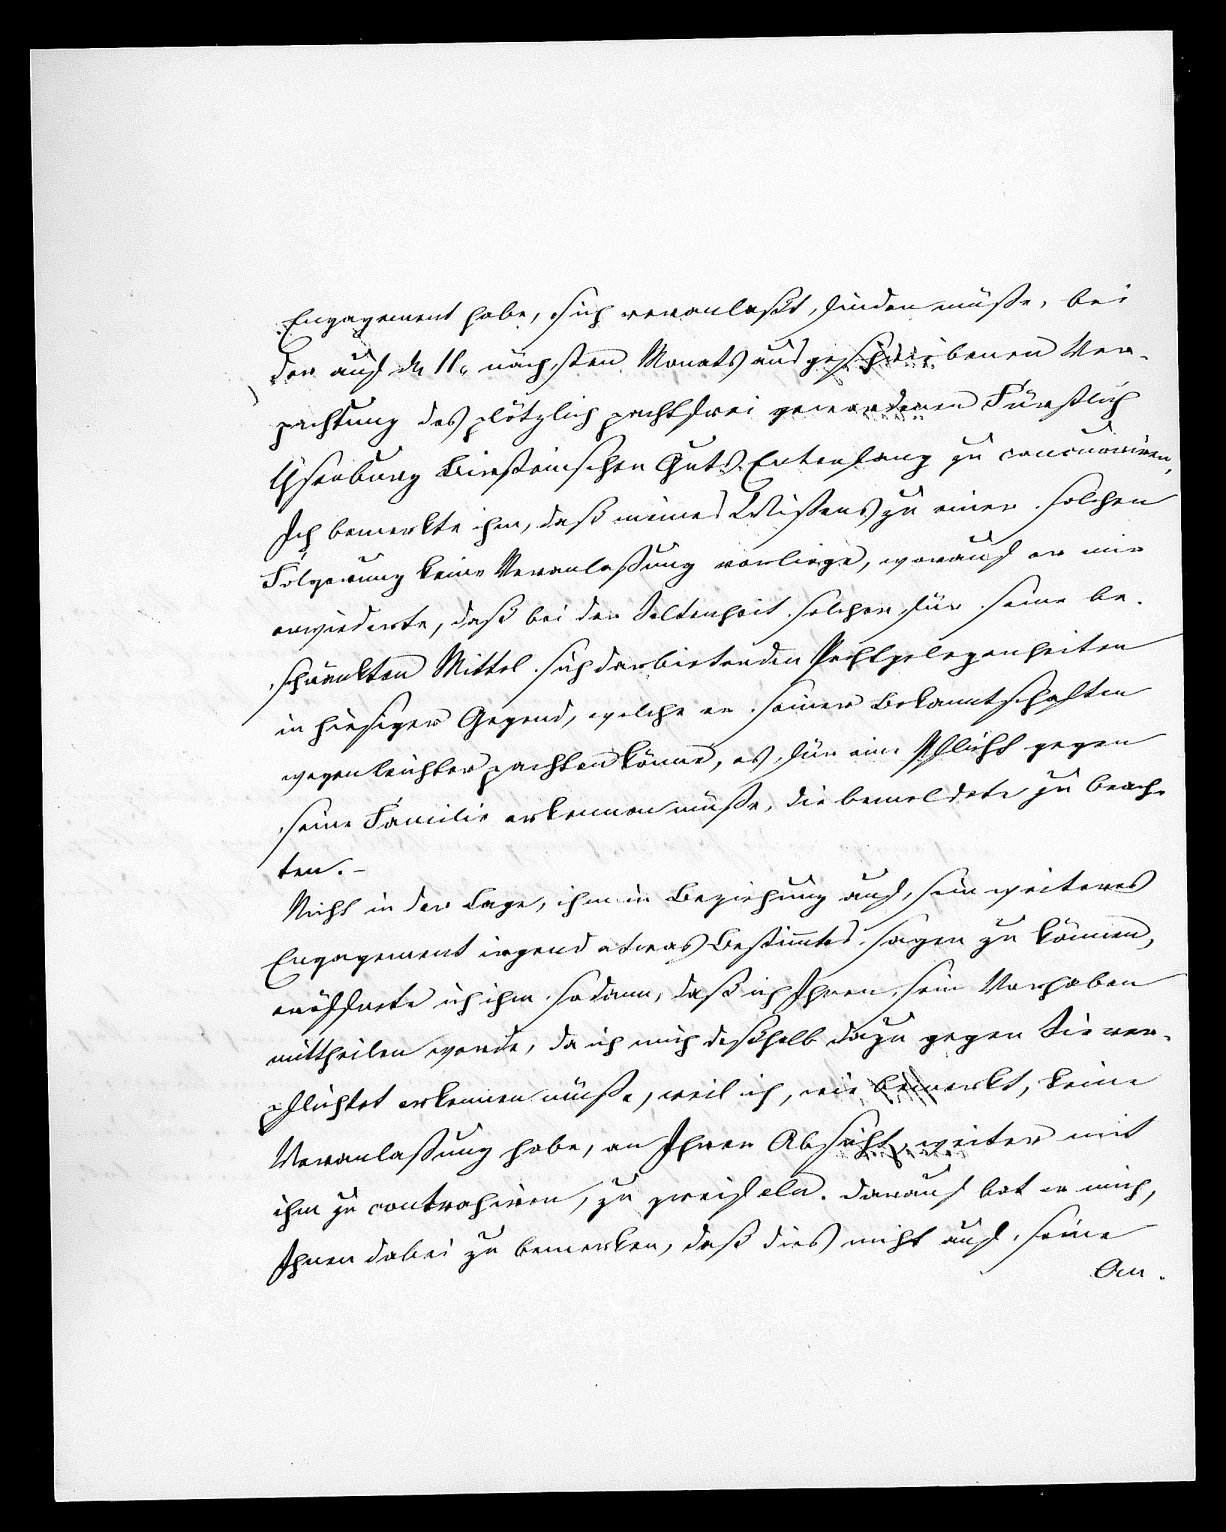 Engagement habe, sich veranlaßt finden müße, bei
der auf den 11n nächsten Monats ausgeschriebenen Ver-
pachtung des plötzlich pachtfrei gewordenen Fürstlich
Ysenburg Birsteinschen Guts Entenfang zu concurriren,
Ich bemerkte ihm, daß meines Wißens zu einer solchen
Folgerung keine Veranlaßung vorliege, worauf er mir
erwiederte, daß bei der Seltenheit solcher für seine be-
schränkten Mittel sich darbietenden Pachtgelegenheiten
in hiesiger Gegend, welche er seiner Bekanntschaften
wegen leichter pachten könne, es für eine Pflicht gegen
seine Familie erkennen müße, die bemeldete zu beach-
ten. -
Nicht in der Lage, ihm in Beziehung auf sein weiteres
Engagement irgend etwas Bestimmtes sagen zu können,
eröffnete ich ihm sodann, daß ich Ihnen sein Vorhaben
mittheilen werde, da ich mich deßhalb dazu gegen Sie ver-
pflichtet erkennen müße, weil ich, wie bemerkt, keine
Veranlaßung habe, an Ihrer Absicht, weiter mit
ihm zu contrahiren, zu zweifeln. Darauf bat er mich,
Ihnen dabei zu bemerken, daß dies nicht auf seine
An-